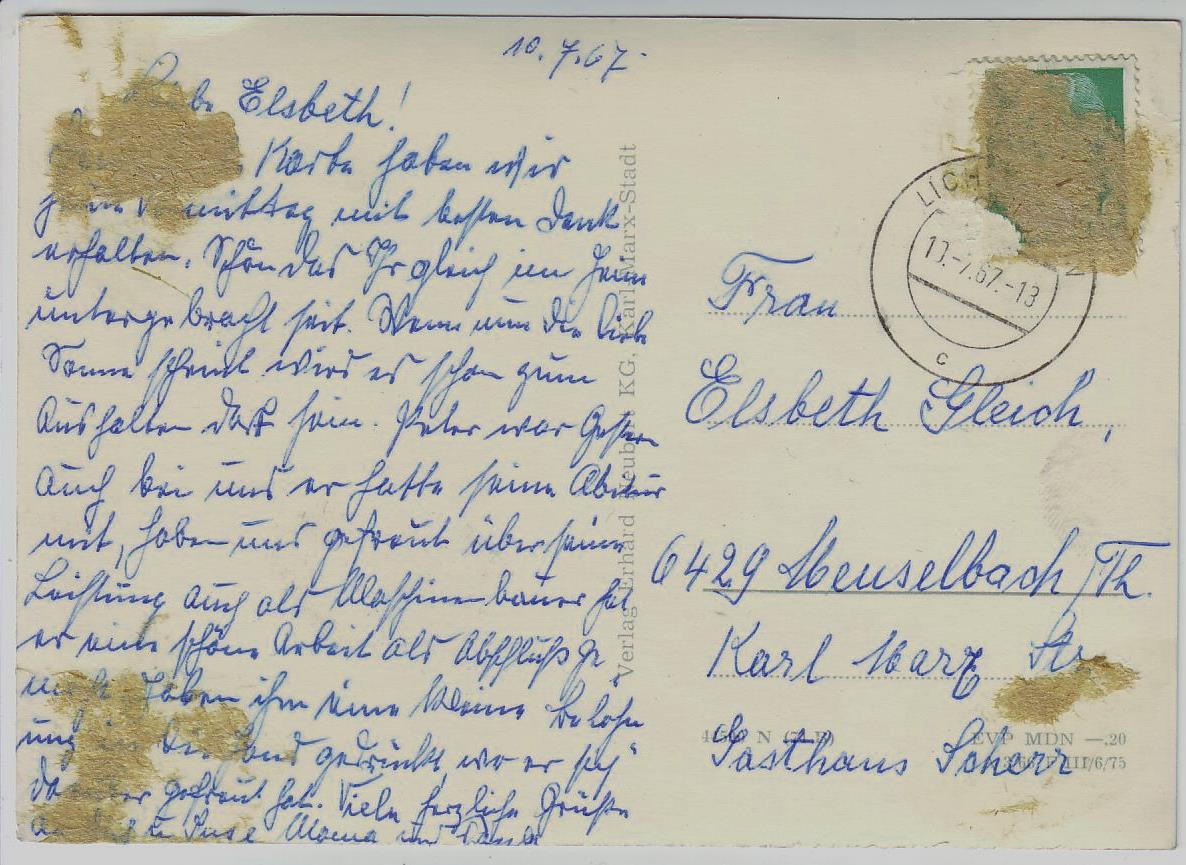 10.7.67.
Elsbeth!
Karte haben wir
mittag mit besten Dank
erhalten. Schön das Ihr gleich im Heim
untergebracht seit. Wenn nun die liebe
Sonne scheint wird es schon zum
Aushalten dort sein. Peter war Gestern
Auch bei uns er hatte seine Abitur
mit, haben uns gefreut über seine
Leistung auch als Maschinenbauer hat
er eine schöne Arbeit als Abschluß ge
haben ihm eine kleine Belohn
ung Hand gedrückt, wo er sich
gefreut hat. Viele herzliche Grüße
Mama und
Verlag Erhard Neubert KG, Karl-Marx-Stadt
LICH
10.-7.67.-13
c
Frau
Elsbeth Gleich,
6429 Meuselbach/Th.
Karl Marx Str
Gasthaus Scherr
EVP MDN —,20
III/6/75